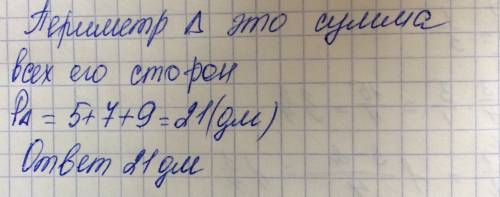 Периметр Δ это сумма
всех его сторон
P△ = 5+7+9=21(дм)
Ответ 21дм